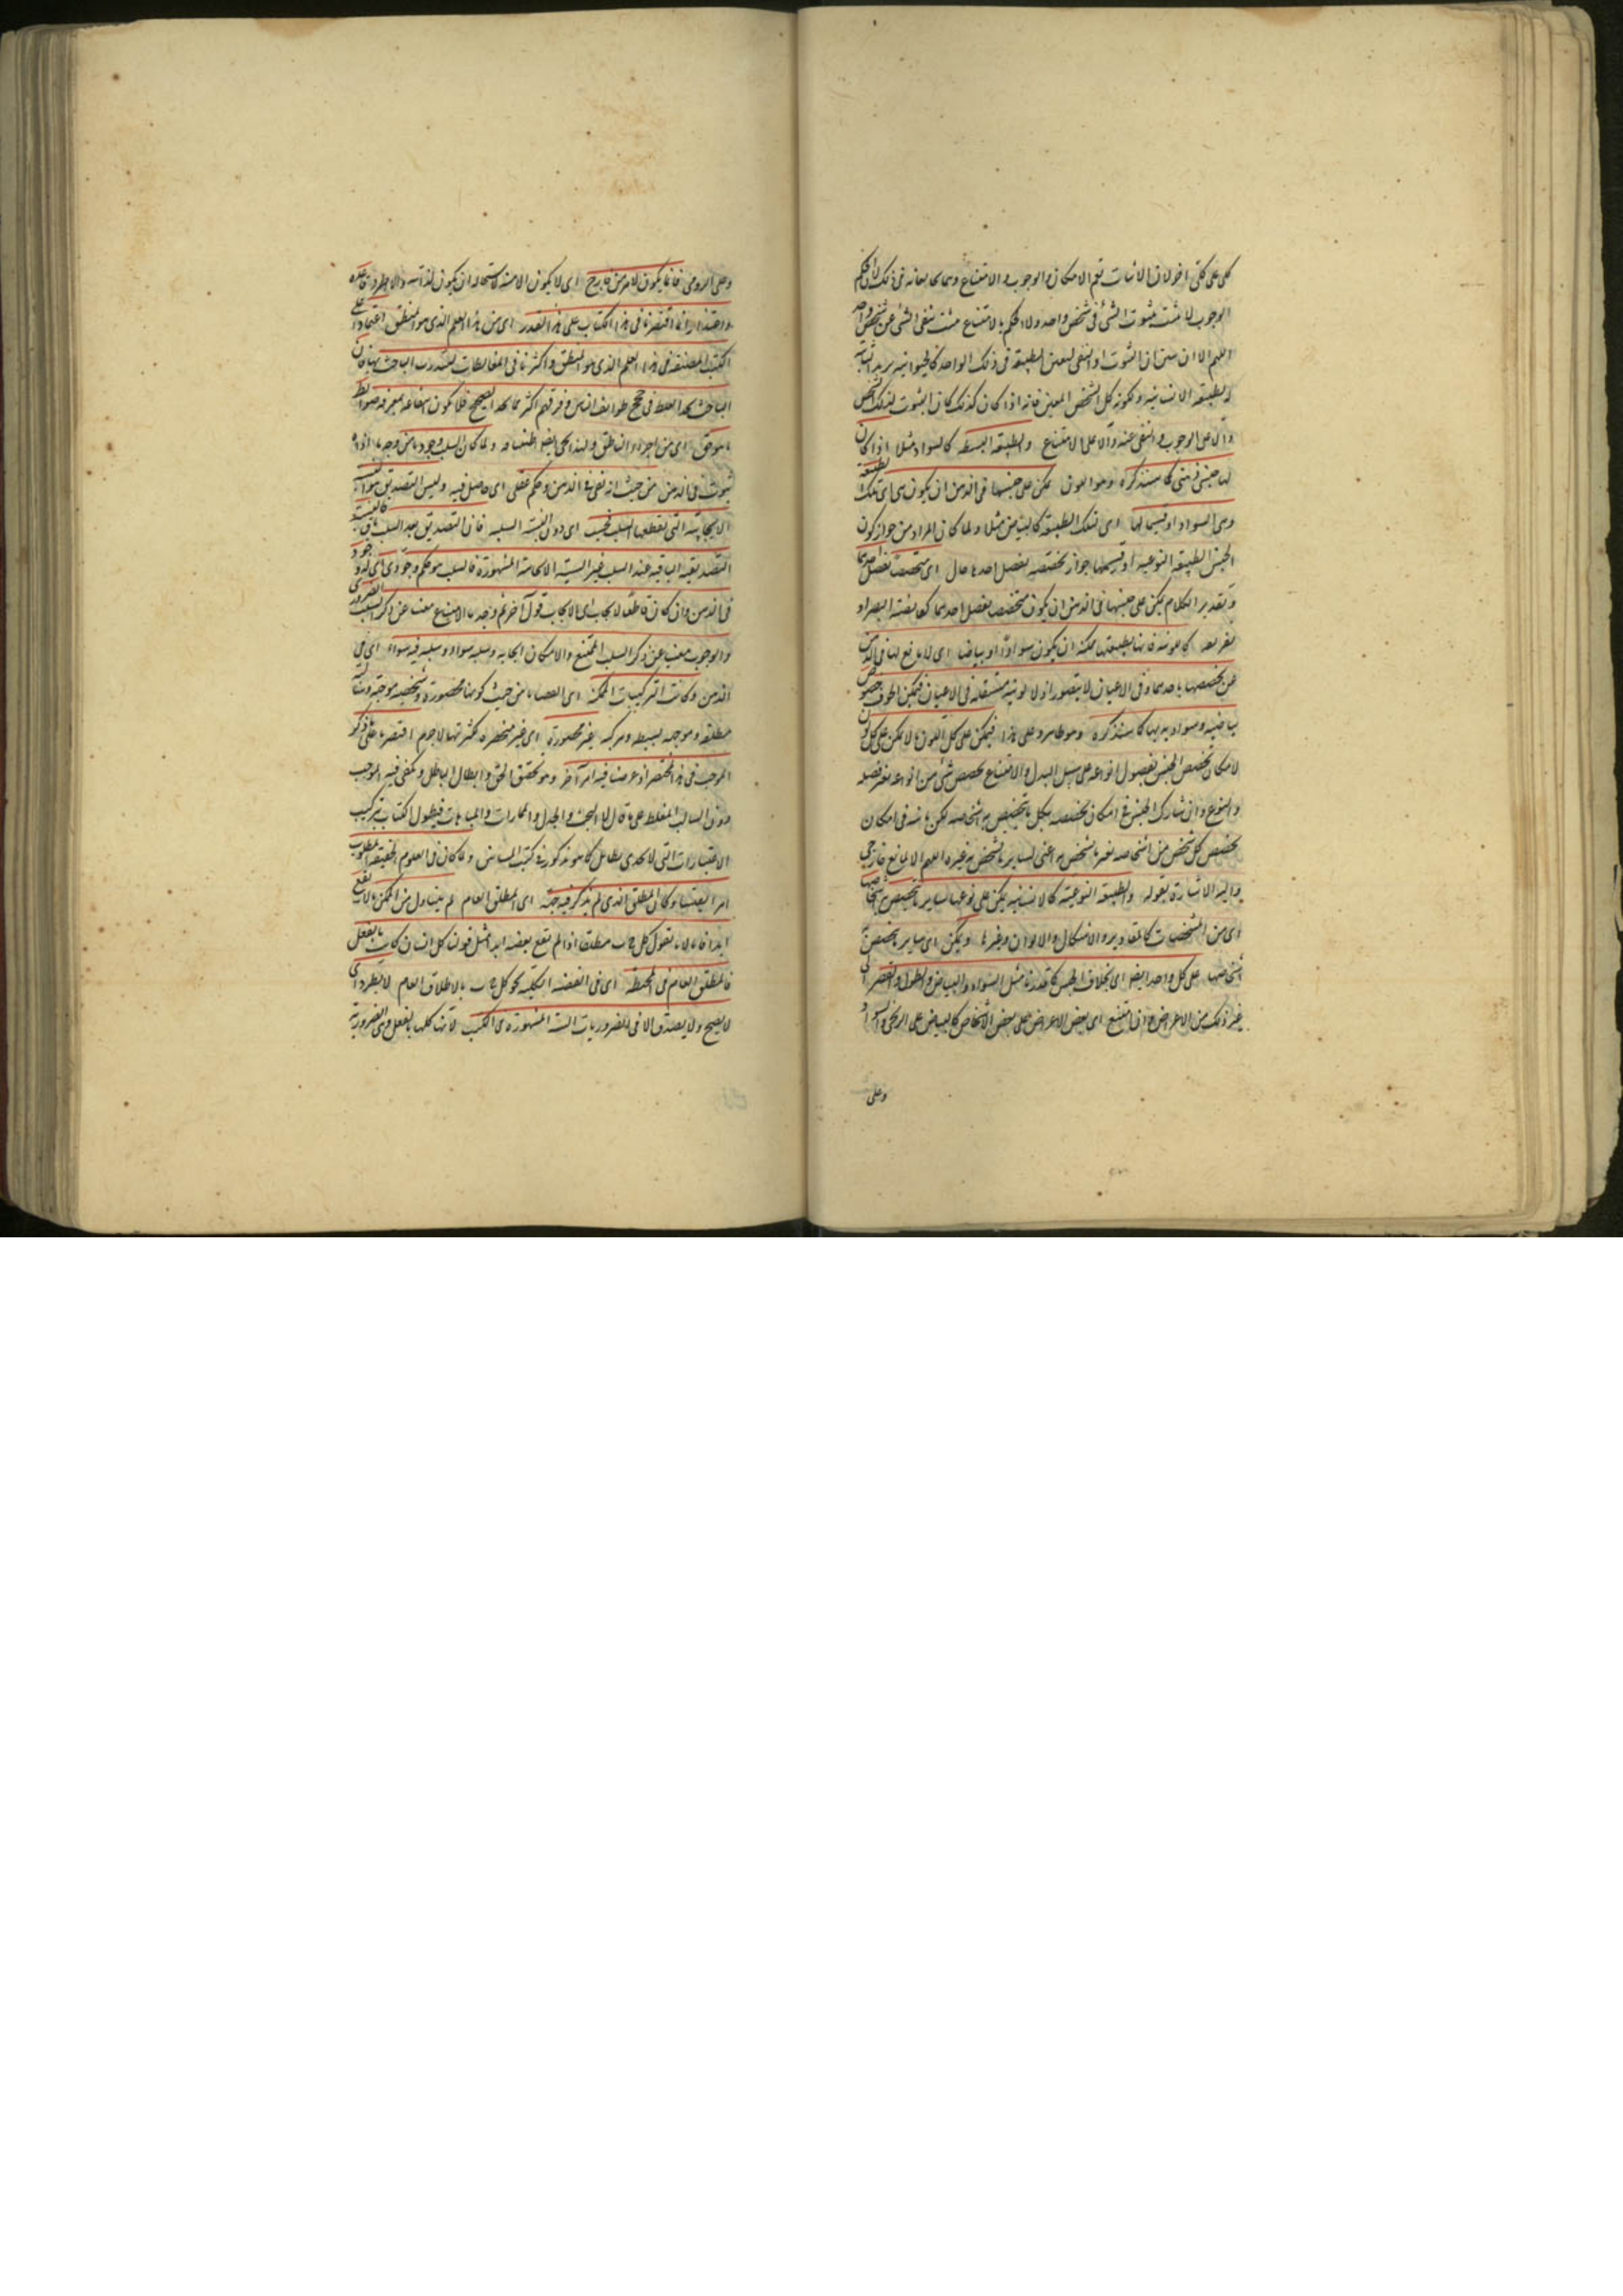 كلى على كلى آخر لان الاثبات تعم الامكان والوجوب والامتناع وهما يخالفانه فى ذلك لان حكم
الوجوب لا يثبت بثبوت الشئ فى شخص واحد ولا حكم بالامتناع يثبت بنفى الشئ عن شخص واحد
اللهم الا ان يتبين ان الثبوت او النفى لعين الطبيعة فى ذلك الواحد كالحيوانية يريد اثباته
لطبيعة الانسانية ونحوه كل الشخص المعين فانه اذا كان كذلك كان الثبوت لذلك الشخص
دالا على الوجوب والنفى عنه دالا على الامتناع والطبيعة البسيطة كالسواد مثلا اذا كان
لها جنس ذهنى كما سنذكره وهو اللون يمكن على جنسها فى الذهن ان يكون هى اى تلك الطبيعة
وهى السواد او قسيما لها اى لتلك الطبيعة كالبياض مثلا ولما كان المراد من جواز كون
الجنس الطبيعة النوعية او قسيمها جواز تخصصه بفصل احدهما قال اى متخصصا بفصل احدهما
وتقدير الكلام يمكن على جنسها فى الذهن ان يكون متخصصا بفصل احدهما كقابضية البصر او
تفريقه كاللونية فانها بطبيعتها ممكنة ان يكون سوادا او بياضا اى لا مانع لها فى الذهن
عن تخصصها باحدهما وفى الاعيان لا يتصور اذ لا لونية مستقلة فى الاعيان فيمكن لحوق خصوص
بياضية وسوادية بها كما سنذكره وهو ظاهر وعلى هذا فيمكن على كل اللون ما لا يمكن على كل لون
لامكان تخصص الجنس بفصول انواعه على سبيل البدل والامتناع تخصص شئ من انواعه بغير فصله
والنوع وان شارك الجنس فى امكان تخصصه بكل ما تخصص به اشخاصه لكن ما شه فى امكان
تخصص كل شخص من اشخاصه بغير ما تشخص به اعنى بسائر ما تشخص به غيره اللهم الا لمانع خارجى
واليه الاشارة بقوله والطبيعة النوعية كالانسانية يمكن على نوعها سائر ما تخصص به اشخاصها
اى من المشخصات كالمقادير والاشكال والالوان وغيرها ويمكن اى سائر ما تخصص به
اشخاصها على كل واحد ايضا اى بخلاف الجنس كما قدرنا مثل السواد والبياض والطول والقصر الى
غير ذلك من الاعراض وان امتنع اى بعض الاعراض على بعض الاشخاص كالبياض على الزنجى والسواد
وعلى
وعلى الرومى فانما يكون لامر من خارج اى لا يكون الامتناع لذاته استحالة ان يكون لذاته والا لاطرد قاعدة
واحدة وانما اقتصرنا فى هذا الكتاب على هذا القدر اى من هذا العلم الذى هو المنطق اعتمادا على
الكتب المصنفة فى هذا العلم الذى هو المنطق واكثرنا فى المغالطات لتدرب الباحث بها فان
الباحث يجد الغلط فى حجج طوائف الناس وفرقهم اكثر مما يجد الصحيح فلا يكون انتفاعه بمعرفة ضوابط
ما هو حق اى من اجزاء المنطق ولما كان السلب وجودا من وجه ما اذ له
ثبوت فى الذهن من حيث انه نفى فى الذهن وحكم عقلى اى حاصل فيه وليس التصديق هو النسبة
الايجابية التى يقطعها السلب فحسب اى دون النسبة السلبية فان التصديق بعد السلب باق فالنسبة
التصديقية الباقية عند السلب غير النسبة الايجابية المشهورة فالسلب هو حكم وجودى اى له وجود
فى الذهن وان كان قاطعا لايجاب اى لايجاب قول آخر ثم وجدنا الامتناع مغنيا عن ذكر السلب الضرورى
والوجوب مغنيا عن ذكر السلب الممتنع والامكان ايجابه وسلبه سواء وسلبه فيه سواء اى فى
الذهن وكانت التركيبات الممكنة اى القضايا من حيث كونها محصورة وشخصية موجبة وسالبة
مطلقة وموجهة بسيطة ومركبة غير محصورة اى غير منحصرة لكثرتها لا جرم اقتصرنا على ذكر
الموجب فى هذا المختصر اذ غرضنا فيه امر آخر وهو تحقيق الحق وابطال الباطل ويكفى فيه الموجب
دون السالب المغلط على ما قال لا البحث والجدل والممارات والمباهات فيطول الكتاب بتركيب
الاعتبارات التى لا يجدى بطائل كما هو مذكور فى كتب المشائين ولما كان فى العلوم الحقيقية المطلوب
امرا يقينيا وكان المطلق الذى لم يذكر فيه جهة اى المطلق العام لم يتناول من الممكن ما لا يقع
ابدا فانا لا نقول كل ج ب مطلقا اذا لم يقع بعضه ابدا مثل قولنا كل انسان كاتب بالفعل
فالمطلق العام فى المحيطة اى فى القضية الكلية نحو كل ج ب بالاطلاق العام لا يطرد اى
لا يصح ولا يصدق الا فى الضروريات الستة المشهورة فى الكتب لانها كلها بالفعل وهى الضرورية